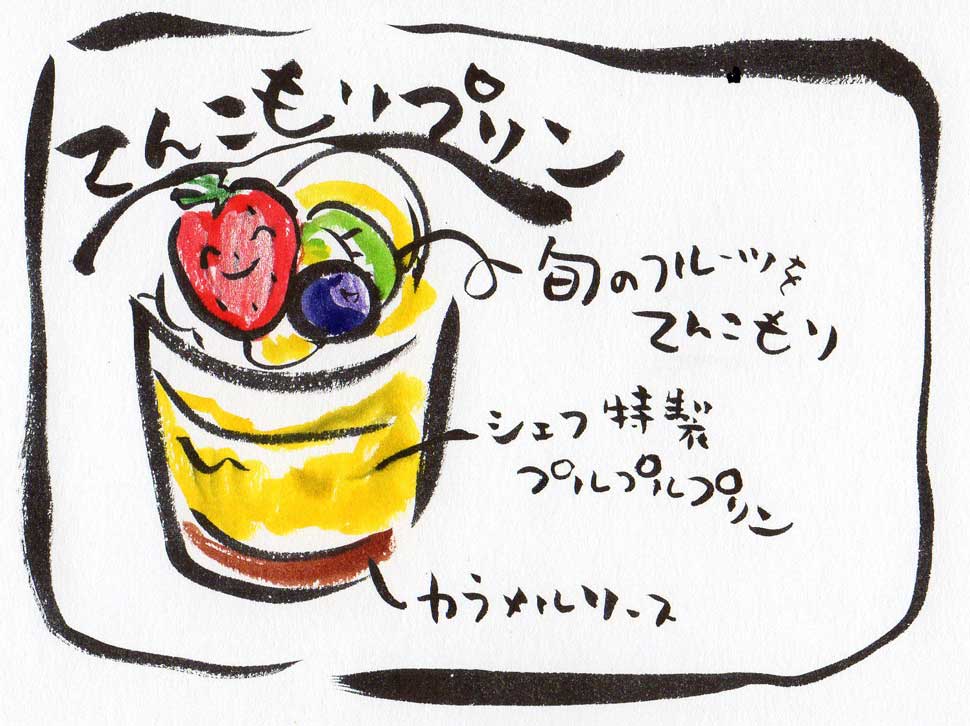 てんこもりプリン
旬のフルーツを
てんこもり
シェフ特製
プルプルプリン
カラメルソース